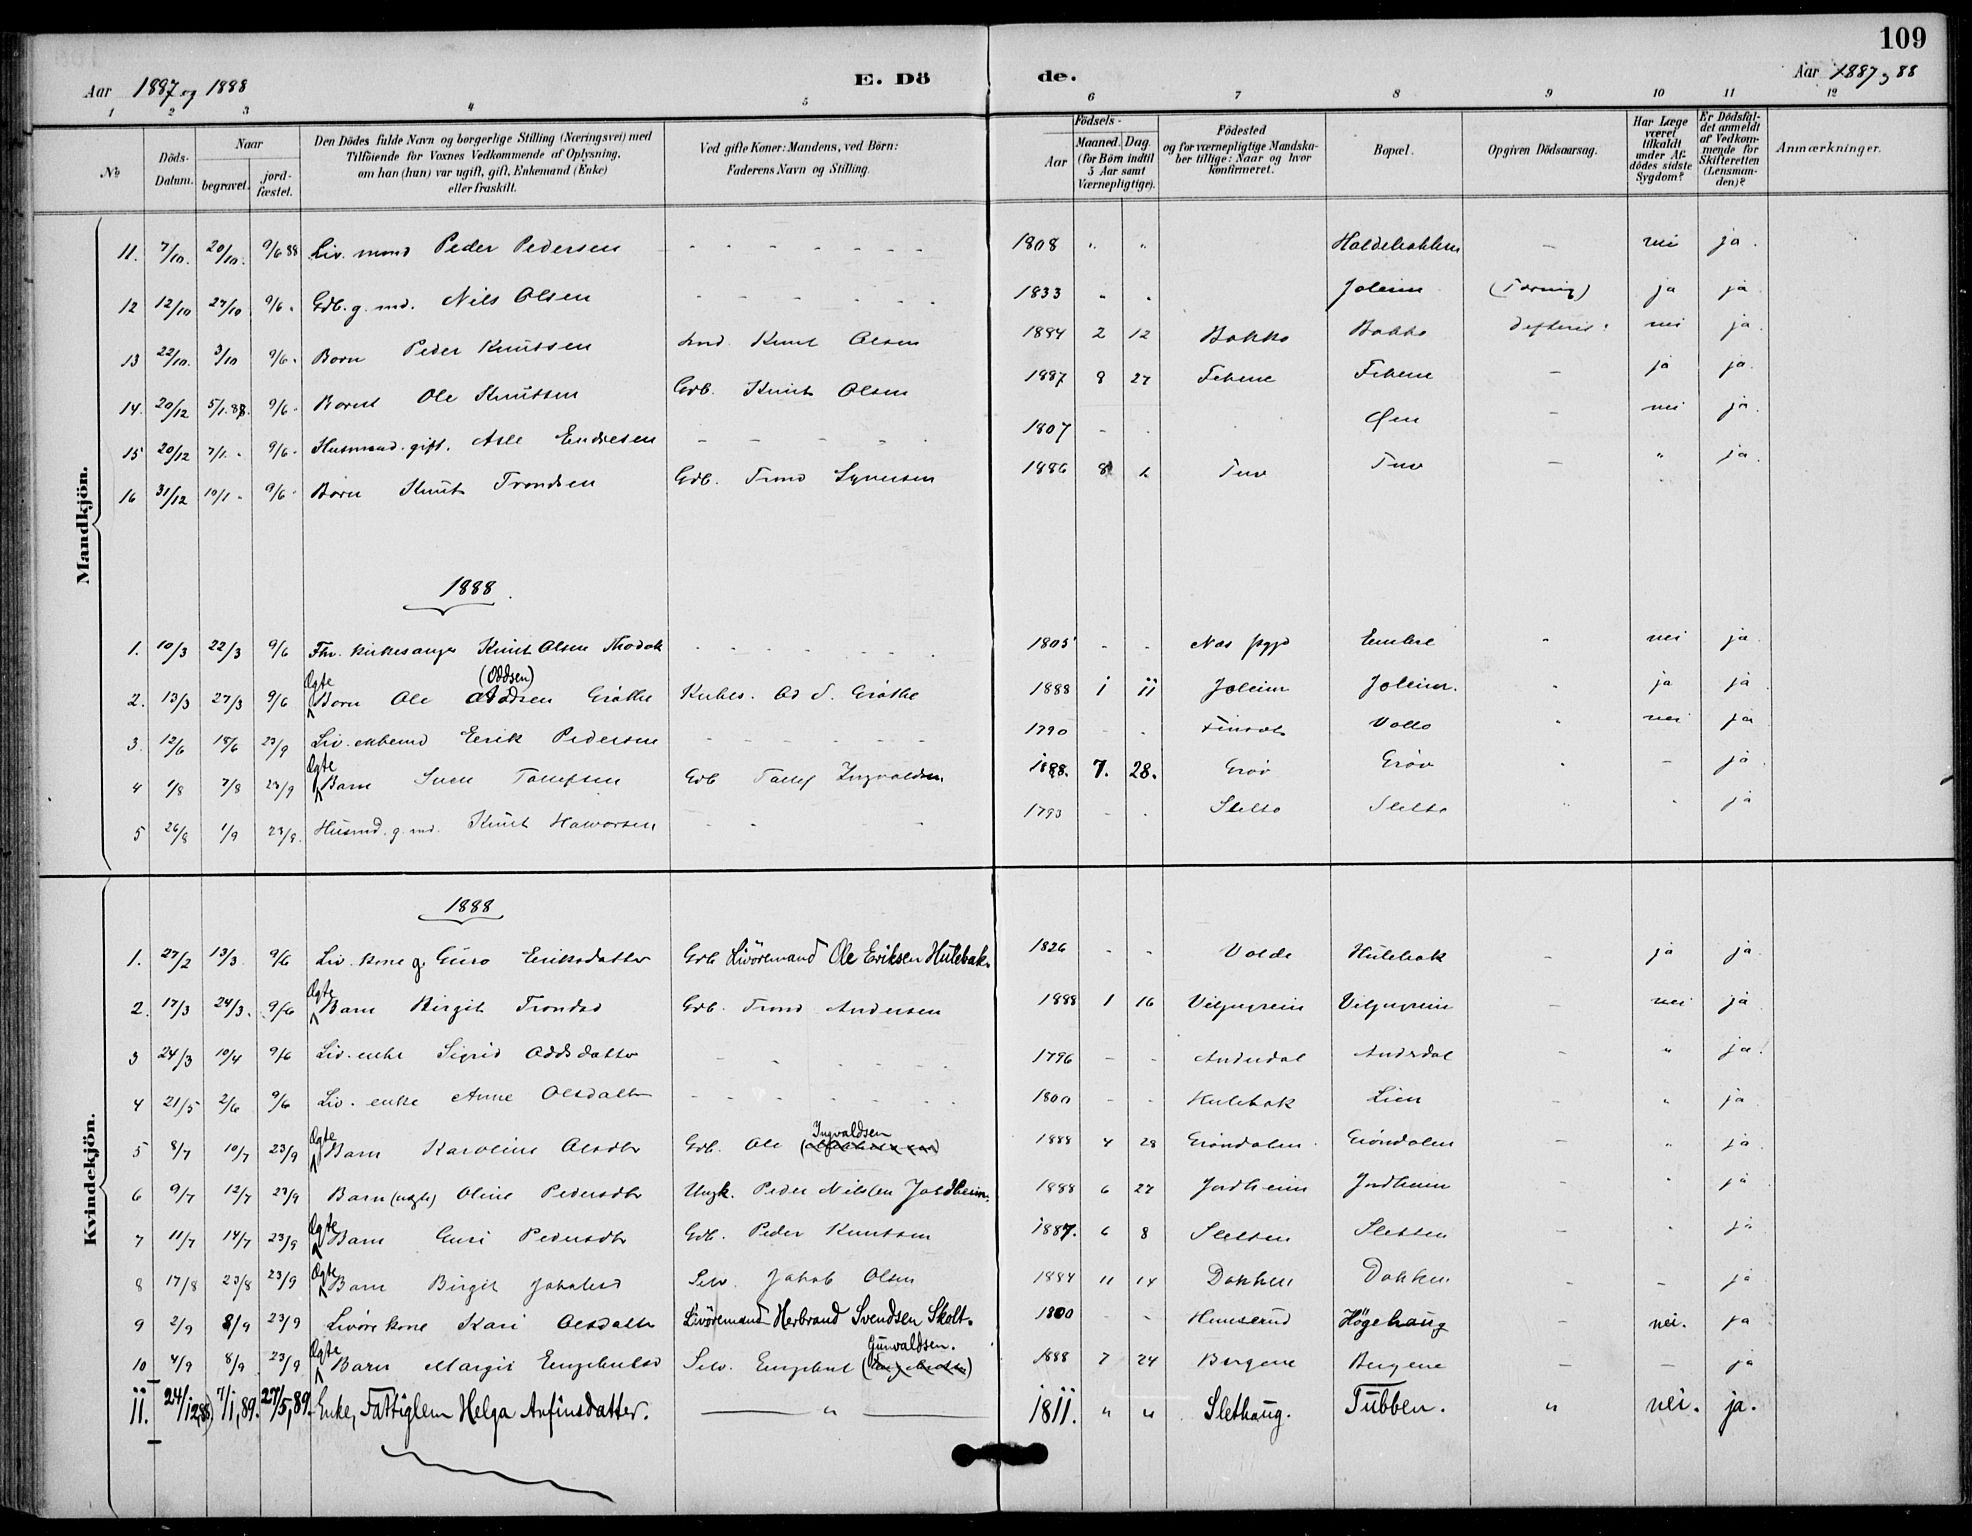 109
Aar 1887 og 1888 E. Dö de. Aar 1887 og 88
1 2 3 4 5 6 7 8 9 10 11 12
No
Döds-Datum.
Naar
begravet.
jord-fæstet.
Den Dödes fulde Navn og borgerlige Stilling (Næringsvei) med
Tilföiende for Voxnes Vedkommende af Oplysning,
om han (hun) var ugift, gift, Enkemand (Enke)
eller fraskilt.
Ved gifte Koner: Mandens, ved Børn:
Faderens Navn og Stilling.
Födsels-
Aar
Maaned. Dag.
(for Börn indtil
5 Aar samt
Værnepligtige).
Födested
og for værnepligtige Mandska-
ber tillige: Naar og hvor
konfirmeret.
Bopæl.
Opgiven Dödsaarsag.
Har Læge
været
tilkaldt
under Af-
dödes sidste
Sygdom?
Er Dödsfal-
det anmeldt
af Vedkom-
mende for
Skifteretten
(Lensman-
den)?
Anmærkninger.
Mandkjön.
11. 7/10. 20/10. 9/6 88 Liv. mand Peder Pedersen 1808 " " nei ja.
12 12/10 27/10 9/6 " Gdb. g. md. Nils Olsen 1833 " " Joleim ja ja
13 22/10. 3/10 9/6 " Barn Peder Knutssen Knut Olsen 1884 2 12 Bakko Bakko Difterit. nei ja
14. 20/12 5/1.88. 9/6 " Barn Ole Knutssen Gdb. Knut Olsen 1887 8 27 ja ja.
15 20/12 7/1. " 9/6 " Husmand. gift. Asle Endresen 1807 - . Øen nei ja.
16 31/12 10/1 " 9/6 " Barn Knut Trondsen Gdb. Trond Syversen 1886 8 Tuv Tuv " ja.
1888
1. 10/3 22/3 9/6 Fhv. kirkesanger Knut Olsen 1805 - . Næs pgjd nei ja
(Oddsen)
Ægte
2. 13/3 27/3 9/6 Barn Ole Grøthe Grøthe 1888 1 11 Joleim Joleim. ja ja
3. 12/6 18/6 23/9 Liv. Eerik Pedersen 1790 - . nei ja
Ægte
4 1/8 7/8 23/9 Barn Svein Tollefsen Gdb Tollef Ingvaldsen 1888. 7. 28. Grøv Grøv - ja
5 26/8 1/9 23/9. Husmd. g. md. Knut Halvorsen 1793 - . Sletto Sletto ja
Kvindekjön.
1888
1. 27/2 13/3 9/6 Liv. kone g. Guro Eriksdatter Gdb. Livöremand Ole Eriksen Hulebak. 1826 - - Volde Hulebak ja ja
Ægte
2. 17/3 24/3. 9/6 Barn Birgit Trondsd Gdb. Trond Andersen 1888 1 16 nei ja
3 24/3 10/4 9/6 Liv. enke Sigrid Oddsdatter 1796 - - Andsdal " ja.
4 21/5 2/6 9/6 Liv. enke Anne Olsdatter 1800 - - Hulebak Lien " ja
Ægte Ingvaldsen
5 8/7 10/7 23/9 Barn Karoline Olsdtr Gdb. Ole 1888 4 28 Gröndalen Gröndalen " ja
6 9/7 12/7 23/9 Barn (uægte) Oline Pedersdtr Ungk. Peder Nilssen Jordheim. 1888 6 27 Jordheim Jordheim ja
Ægte
7 11/7 14/7 23/9 Barn Guri Pedersdtr Gdb. Peder Knutssen 1887. 6 8 Sletten Sletten ja
Ægte
8 17/8 23/8 23/9 Barn Birgit Jakobsd Selv. Jakob Olsen 1884 11 14 Dokken Dokken - - ja
9 2/9 8/9 23/9 Livöre kone Kari Olsdatter Livöremand Herbrand Svendsen Skolt. 1800 - - Högehaug nei. ja
Ægte Gunvaldsen.
10 4/9 8/9 23/9 Barn Margit Engebretsd Selv. Engebret 1888 7 24 Bergene Bergene - - ja
11. 24/12,88) 7/1,89. 27/5,89. Enke, Fattiglem Helga Anfinsdatter. " 1811. " " Slethaug. Tubben. " nei. ja.